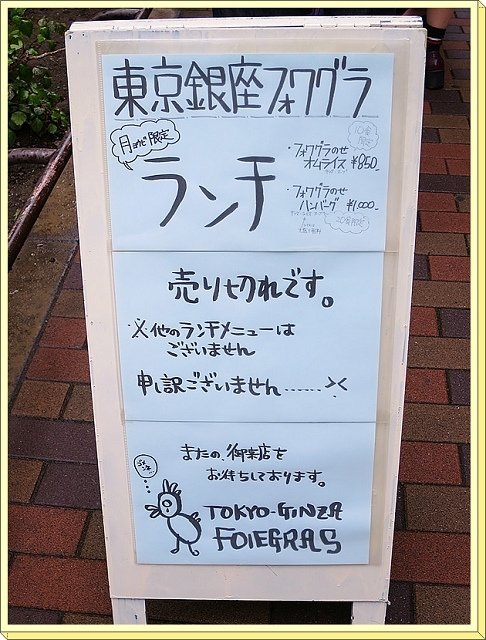 東京銀座フォワグラ
月~金限定
ランチ
10食
限定
・フォワグラのせ
オムライス ¥850-
・フォワグラのせ
ハンバーグ ¥1,000-
20食限定
売り切れです。
※他のランチメニューは
ございません
申し訳ございません……><
またの、御来店を
お待ちしております。
TOKYO-GINZA
FOIEGRAS